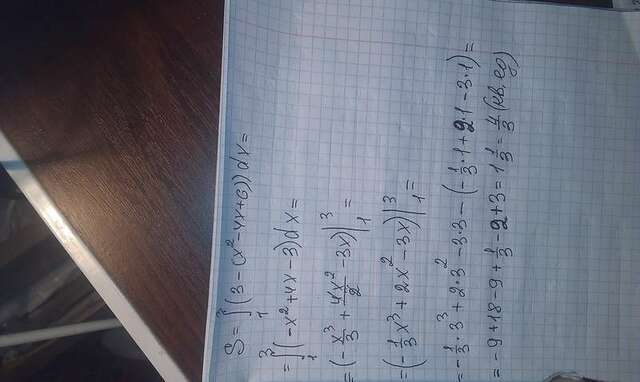 S = ∫₁³ (3 - (x² - 4x + 6)) dx =
= ∫₁³ (-x² + 4x - 3) dx =
= (-x³/3 + 4x²/2 - 3x) |₁³ =
= (-1/3 x³ + 2x² - 3x) |₁³ =
= -1/3 · 3³ + 2 · 3² - 3 · 3 - (-1/3 · 1 + 2 · 1 - 3 · 1) =
= -9 + 18 - 9 + 1/3 - 2 + 3 = 1 1/3 = 4/3 (кв. ед)